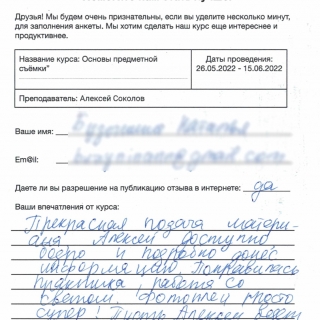 Друзья! Мы будем очень признательны, если вы уделите несколько минут,
для заполнения анкеты. Мы хотим сделать наш курс еще интереснее и
продуктивнее.
Название курса: Основы предметной
съёмки"
Даты проведения:
26.05.2022 - 15.06.2022
Преподаватель: Алексей Соколов
Ваше имя:
Em@il:
Даете ли вы разрешение на публикацию отзыва в интернете: да
Ваши впечатления от курса:
Прекрасная подача матери-
ала Алексей доступно,
бодро и подробно донес
информацию. Понравилась
практика, работа со
светом. Фотоплен просто
супер! Пусть Алексей ведет